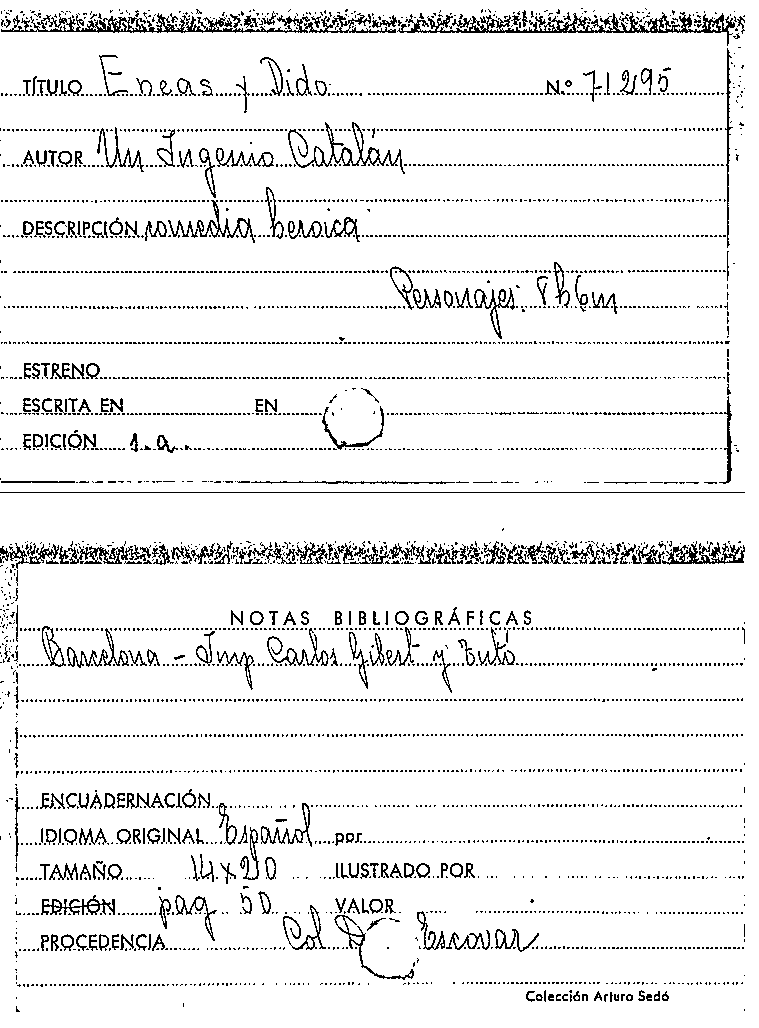 TÍTULO Eneas y Dido N.º 71295
AUTOR Un Ingenio Catalán
DESCRIPCIÓN comedia heroica
Personajes: 8h 6m
ESTRENO
ESCRITA EN EN
EDICIÓN 1.a.
NOTAS BIBLIOGRÁFICAS
Barcelona - Imp Carlos Gibert y Tutó
ENCUADERNACIÓN
IDIOMA ORIGINAL Español por
TAMAÑO 14x20 ILUSTRADO POR
EDICIÓN pag 50 VALOR
PROCEDENCIA Col Escovar
Colección Arturo Sedó